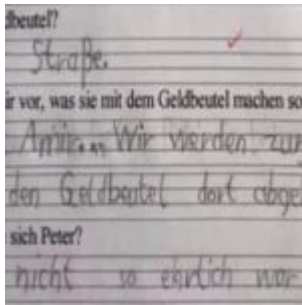 dbeutel?
Straße.
ir vor, was sie mit dem Geldbeutel machen so
Amir... Wir werden zur
den Geldbeutel dort abge
sich Peter?
nicht so ehrlich war